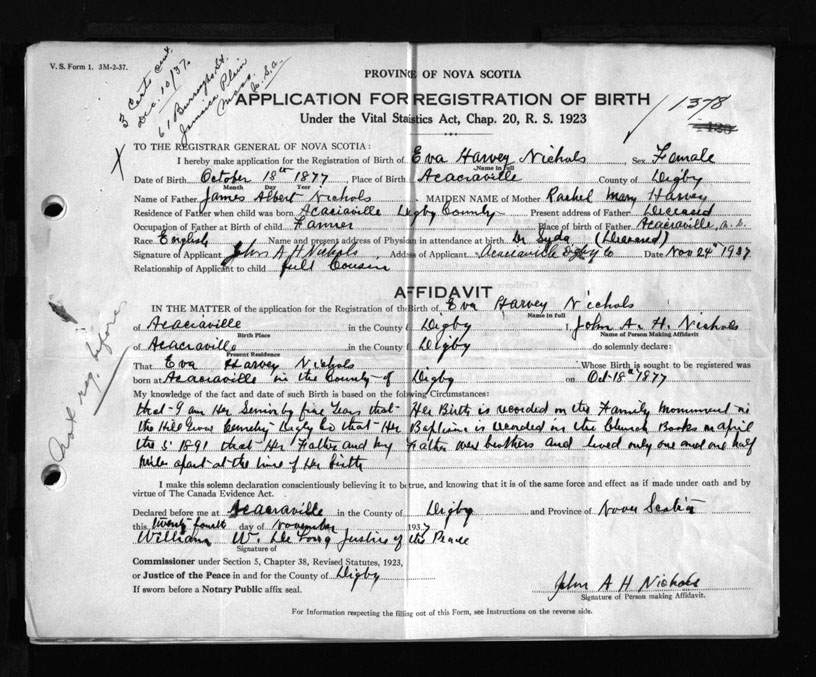 V. S. Form 1. 3M-2-37.
3 Certs out.
Dec. 10/37.
61 Burroughs St.
Jamaica Plain
Mass.
U.S.a.
PROVINCE OF NOVA SCOTIA
APPLICATION FOR REGISTRATION OF BIRTH
Under the Vital Staistics Act, Chap. 20, R. S. 1923
1378
TO THE REGISTRAR GENERAL OF NOVA SCOTIA:
X
I hereby make application for the Registration of Birth of Eva Harvey Nichols Sex Female
Name in full
Date of Birth October 18th 1877 Place of Birth Acaciaville County of Digby
Month Day Year
Name of Father James Albert Nichols MAIDEN NAME of Mother Rachel Mary Harvey
Residence of Father when child was born Acaciaville Digby County Present address of Father Deceased
Occupation of Father at Birth of child Farmer Place of birth of Father Acaciaville, n.S.
Race English Name and present address of Physician in attendance at birth Dr (Deceased)
Signature of Applicant John A H Nichols Address of Applicant Acaciaville Digby Co Date Nov 24th 1937
Relationship of Applicant to child full Cousin
AFFIDAVIT
IN THE MATTER of the application for the Registration of the Birth of Eva Harvey Nichols
Name in full
of Acaciaville in the County of Digby I, John A. H. Nichols
Birth Place Name of Person Making Affidavit
of Acaciaville in the County of Digby do solemnly declare:
Present Residence
That Eva Harvey Nichols Whose Birth is sought to be registered was
born at Acaciaville in the County of Digby on Oct 18th 1877
My knowledge of the fact and date of such Birth is based on the following Circumstances:
that I am Her Senior by five Years that Her Birth is recorded on the Family Monument in
the Hill Grove Cemetry Digby Co that Her Baptism is recorded in the Church Books in April
the 5 1891 that Her Father and my Father were brothers and lived only one and one half
miles apart at the time of Her birth
Not reg. before
I make this solemn declaration conscientiously believing it to be true, and knowing that it is of the same force and effect as if made under oath and by
virtue of The Canada Evidence Act.
Declared before me at Acaciaville in the County of Digby and Province of Nova Scotia
this twenty fourth day of November 1937
William W. De Long Justice of the Peace
Signature of
Commissioner under Section 5, Chapter 38, Revised Statutes, 1923,
or Justice of the Peace in and for the County of Digby
If sworn before a Notary Public affix seal.
John A H Nichols
Signature of Person making Affidavit.
For Information respecting the filling out of this Form, see Instructions on the reverse side.